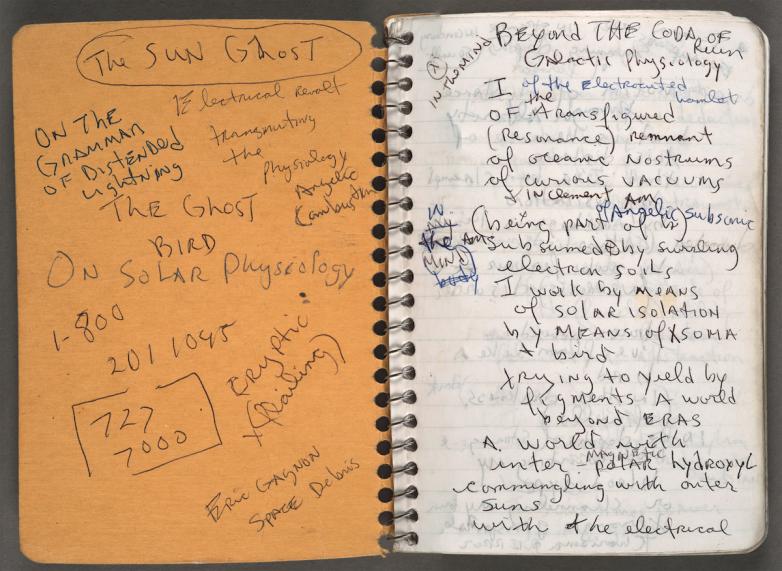 The SUN GHOST
Electrical Revolt
transmuting
the
Physiology
Angelic
Combustion
ON THE
GRAMMAR
OF DISTENDED
LIGHTNING
THE GHOST
BIRD
ON SOLAR Physiology
1-800
201 1045
727
7000
CRYPTIC
(Railing)
ERIC GAGNON
SPACE Debris
BEYOND THE CODA OF
Ruin
Galactic Physiology
IN THE MIND
I of the Electrocuted hamlet
the
OF A transfigured
(Resonance) remnant
of oceanic NOSTRUMS
of curious VACUUMS
& INclement AM
of Angelic subsonic
IN
MY
the AM
MIND
body
(being part of
subsumed by swirling
electron soils
I work by MEANS
of SOLAR ISOLATION
by MEANS of SOMA
+ bird
trying to yield by
figments A world
beyond ERAS
A world with
MAGNETIC
inter-polar hydroxyl
commingling with outer
suns
with the electrical